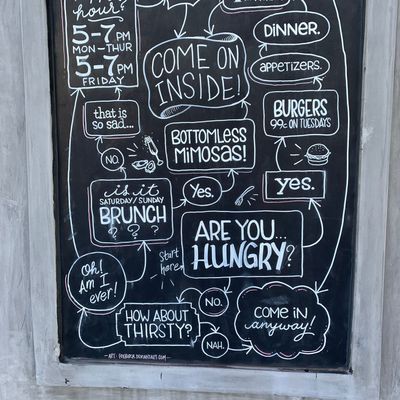 HOUR?
5-7PM
MON-THUR
5-7PM
FRIDAY
COME ON
INSIDE!
DINNER.
APPETIZERS.
that is
so sad...
BURGERS
99¢ ON TUESDAYS
BOTTOMLESS
MIMOSAS!
NO.
is it
SATURDAY/SUNDAY
BRUNCH
? ? ?
Yes.
yes.
ARE YOU...
HUNGRY?
start
here
Oh!
Am I
ever!
NO.
HOW ABOUT
THIRSTY?
NAH.
COME IN
anyway!